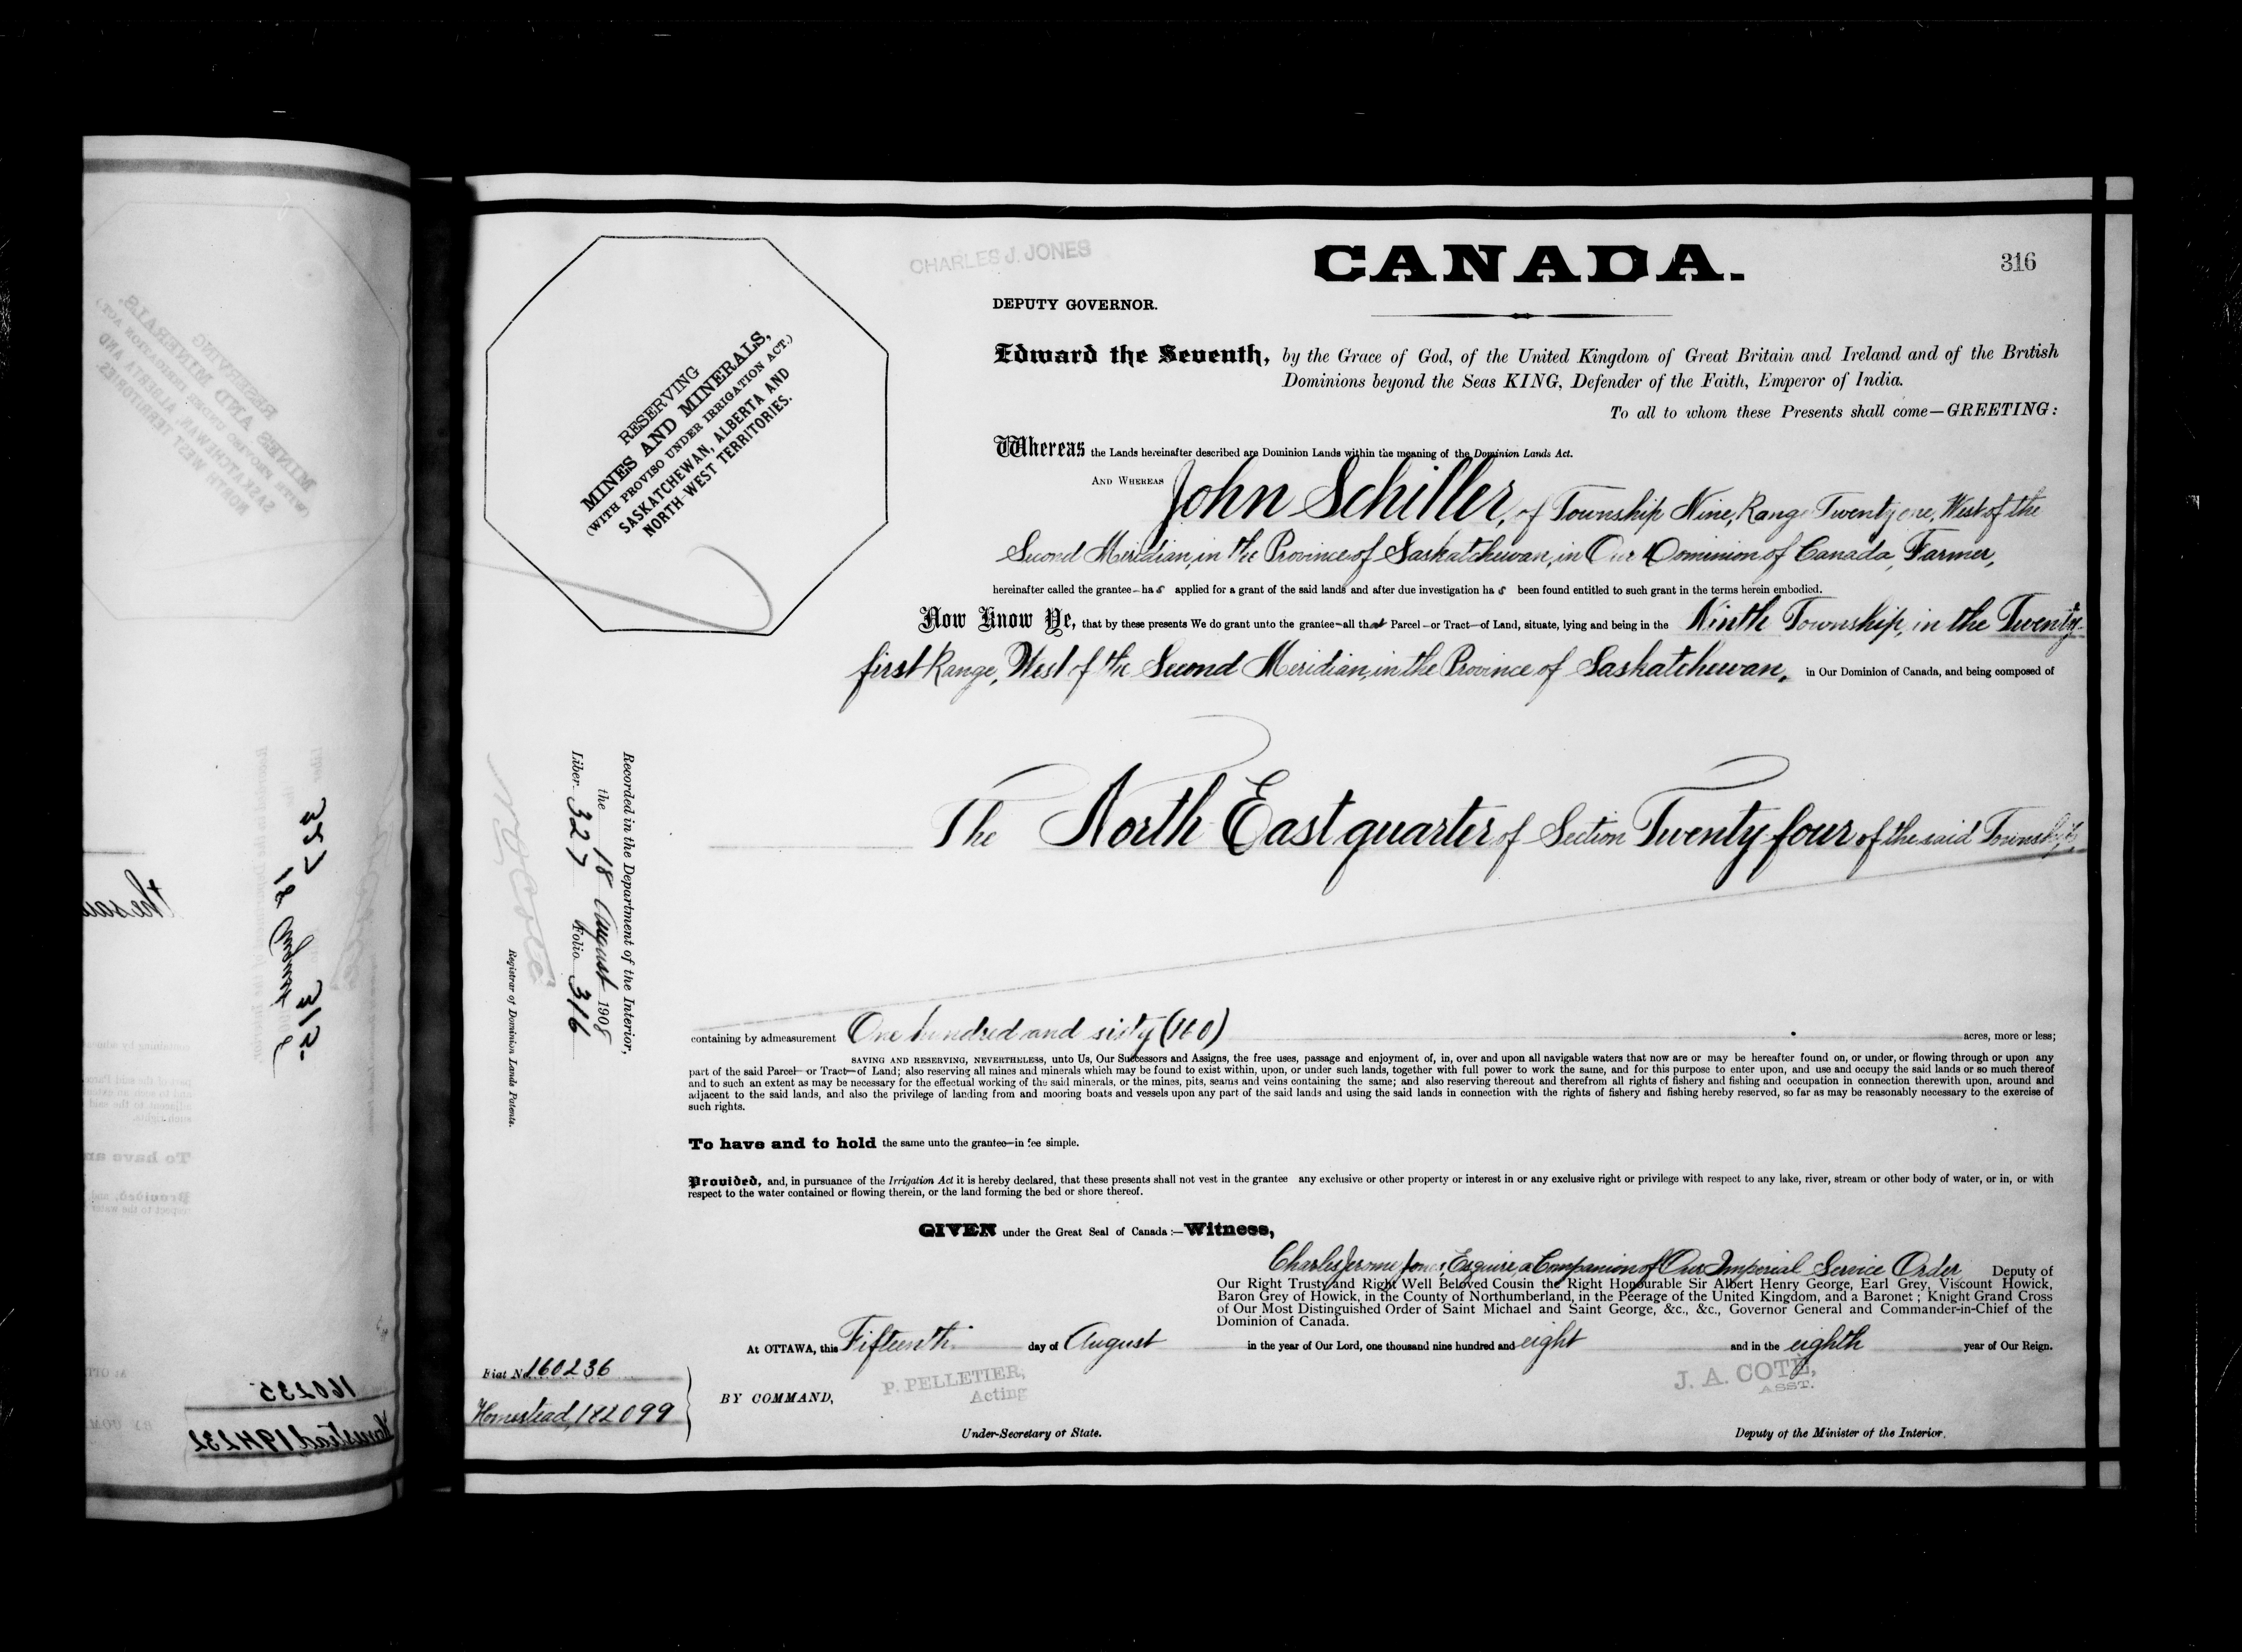 CHARLES J. JONES
CANADA.
316
DEPUTY GOVERNOR.
RESERVING
MINES AND MINERALS,
(WITH PROVISO UNDER IRRIGATION ACT.)
SASKATCHEWAN, ALBERTA AND
NORTH-WEST TERRITORIES.
Edward the Seventh, by the Grace of God, of the United Kingdom of Great Britain and Ireland and of the British
Dominions beyond the Seas KING, Defender of the Faith, Emperor of India.
To all to whom these Presents shall come—GREETING:
Whereas the Lands hereinafter described are Dominion Lands within the meaning of the Dominion Lands Act.
AND WHEREAS John Schiller, of Township Nine, Range Twenty one, West of the
Second Meridian, in the Province of Saskatchewan, in Our Dominion of Canada, Farmer,
hereinafter called the grantee—has applied for a grant of the said lands and after due investigation has been found entitled to such grant in the terms herein embodied.
Now Know Ye, that by these presents We do grant unto the grantee—all that Parcel—or Tract—of Land, situate, lying and being in the Ninth Township, in the Twenty-
first Range, West of the Second Meridian, in the Province of Saskatchewan, in Our Dominion of Canada, and being composed of
The North East quarter of Section Twenty four of the said Township,
Recorded in the Department of the Interior,
the 18 August 1908
Liber 327 Folio 316
Registrar of Dominion Lands Patents.
containing by admeasurement One hundred and sixty (160) acres, more or less;
SAVING AND RESERVING, NEVERTHELESS, unto Us, Our Successors and Assigns, the free uses, passage and enjoyment of, in, over and upon all navigable waters that now are or may be hereafter found on, or under, or flowing through or upon any
part of the said Parcel—or Tract—of Land; also reserving all mines and minerals which may be found to exist within, upon, or under such lands, together with full power to work the same, and for this purpose to enter upon, and use and occupy the said lands or so much thereof
and to such an extent as may be necessary for the effectual working of the said minerals, or the mines, pits, seams and veins containing the same; and also reserving thereout and therefrom all rights of fishery and fishing and occupation in connection therewith upon, around and
adjacent to the said lands, and also the privilege of landing from and mooring boats and vessels upon any part of the said lands and using the said lands in connection with the rights of fishery and fishing hereby reserved, so far as may be reasonably necessary to the exercise of
such rights.
To have and to hold the same unto the grantee—in fee simple.
Provided, and, in pursuance of the Irrigation Act it is hereby declared, that these presents shall not vest in the grantee any exclusive or other property or interest in or any exclusive right or privilege with respect to any lake, river, stream or other body of water, or in, or with
respect to the water contained or flowing therein, or the land forming the bed or shore thereof.
GIVEN under the Great Seal of Canada:—Witness,
Charles Jerome Jones, Esquire, a Companion of Our Imperial Service Order Deputy of
Our Right Trusty and Right Well Beloved Cousin the Right Honourable Sir Albert Henry George, Earl Grey, Viscount Howick,
Baron Grey of Howick, in the County of Northumberland, in the Peerage of the United Kingdom, and a Baronet; Knight Grand Cross
of Our Most Distinguished Order of Saint Michael and Saint George, &c., &c., Governor General and Commander-in-Chief of the
Dominion of Canada.
At OTTAWA, this Fifteenth day of August in the year of Our Lord, one thousand nine hundred and eight and in the eighth year of Our Reign.
Fiat No. 160236
Homestead, 182099
BY COMMAND,
P. PELLETIER,
Acting
Under-Secretary of State.
J. A. COTÉ,
ASST.
Deputy of the Minister of the Interior.